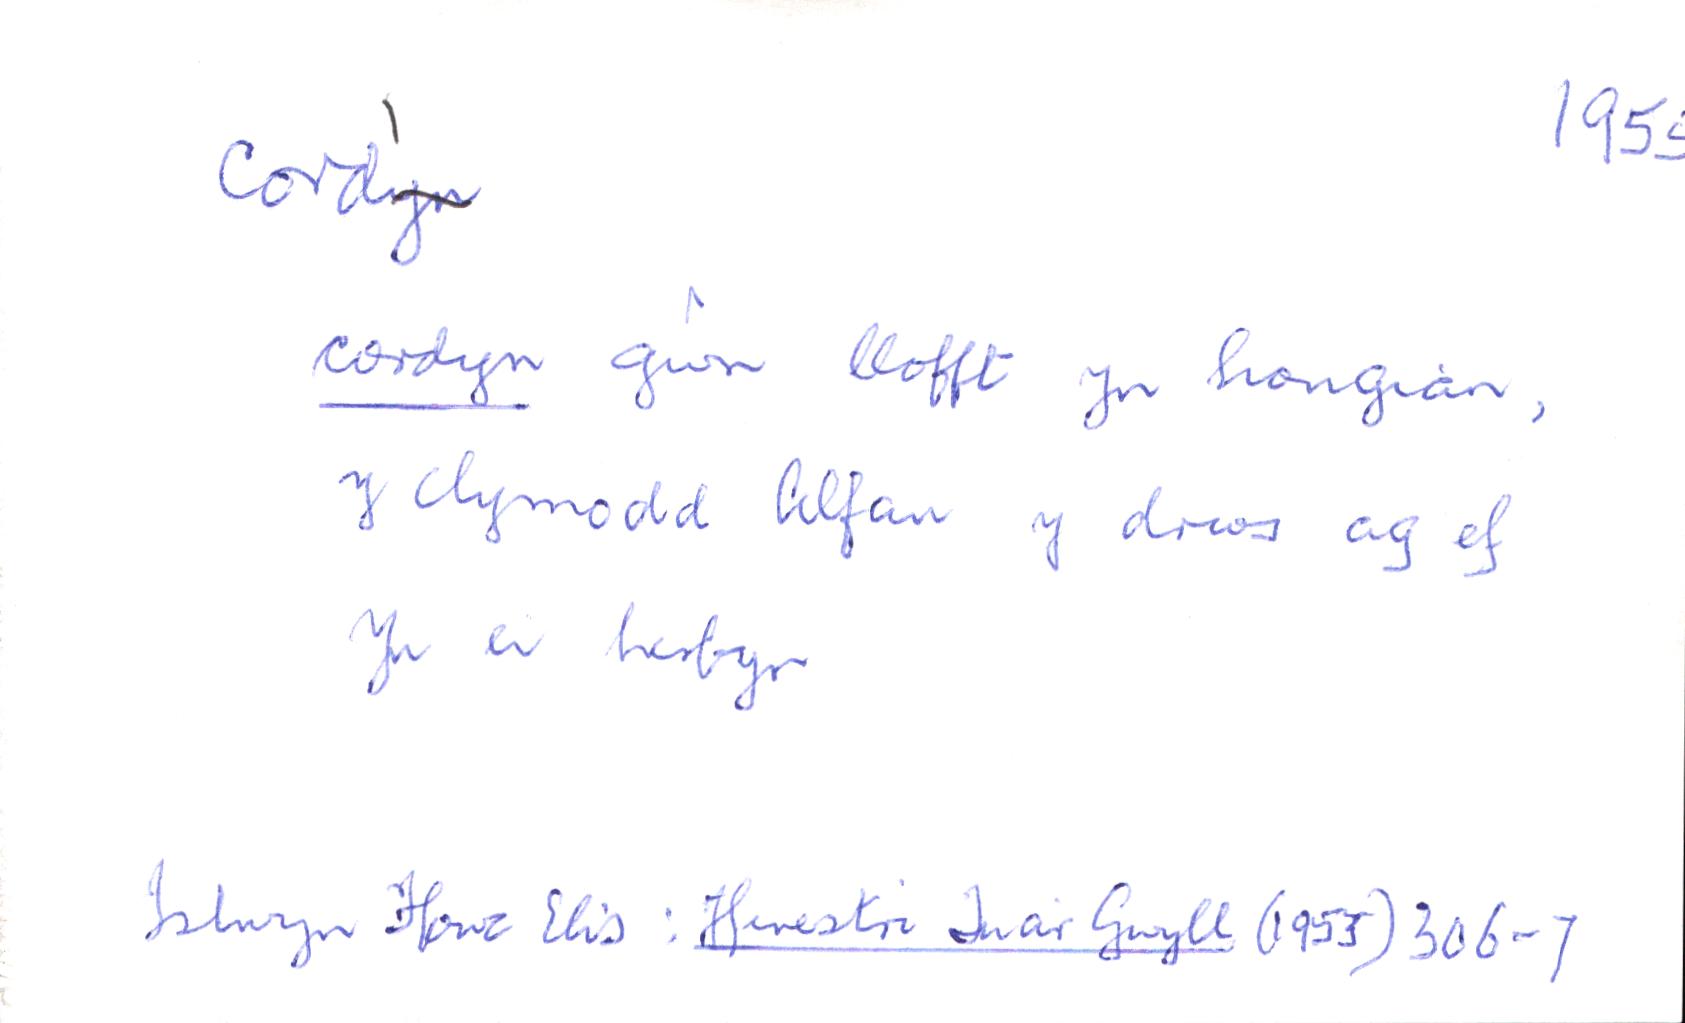 1955
Cordyn
cordyn gŵn llofft yn hongian,
y clymodd Alfan y drws ag ef
yn ei herbyn
Islwyn Ffowc Elis : Ffenestri Tua'r Gwyll (1955) 306-7